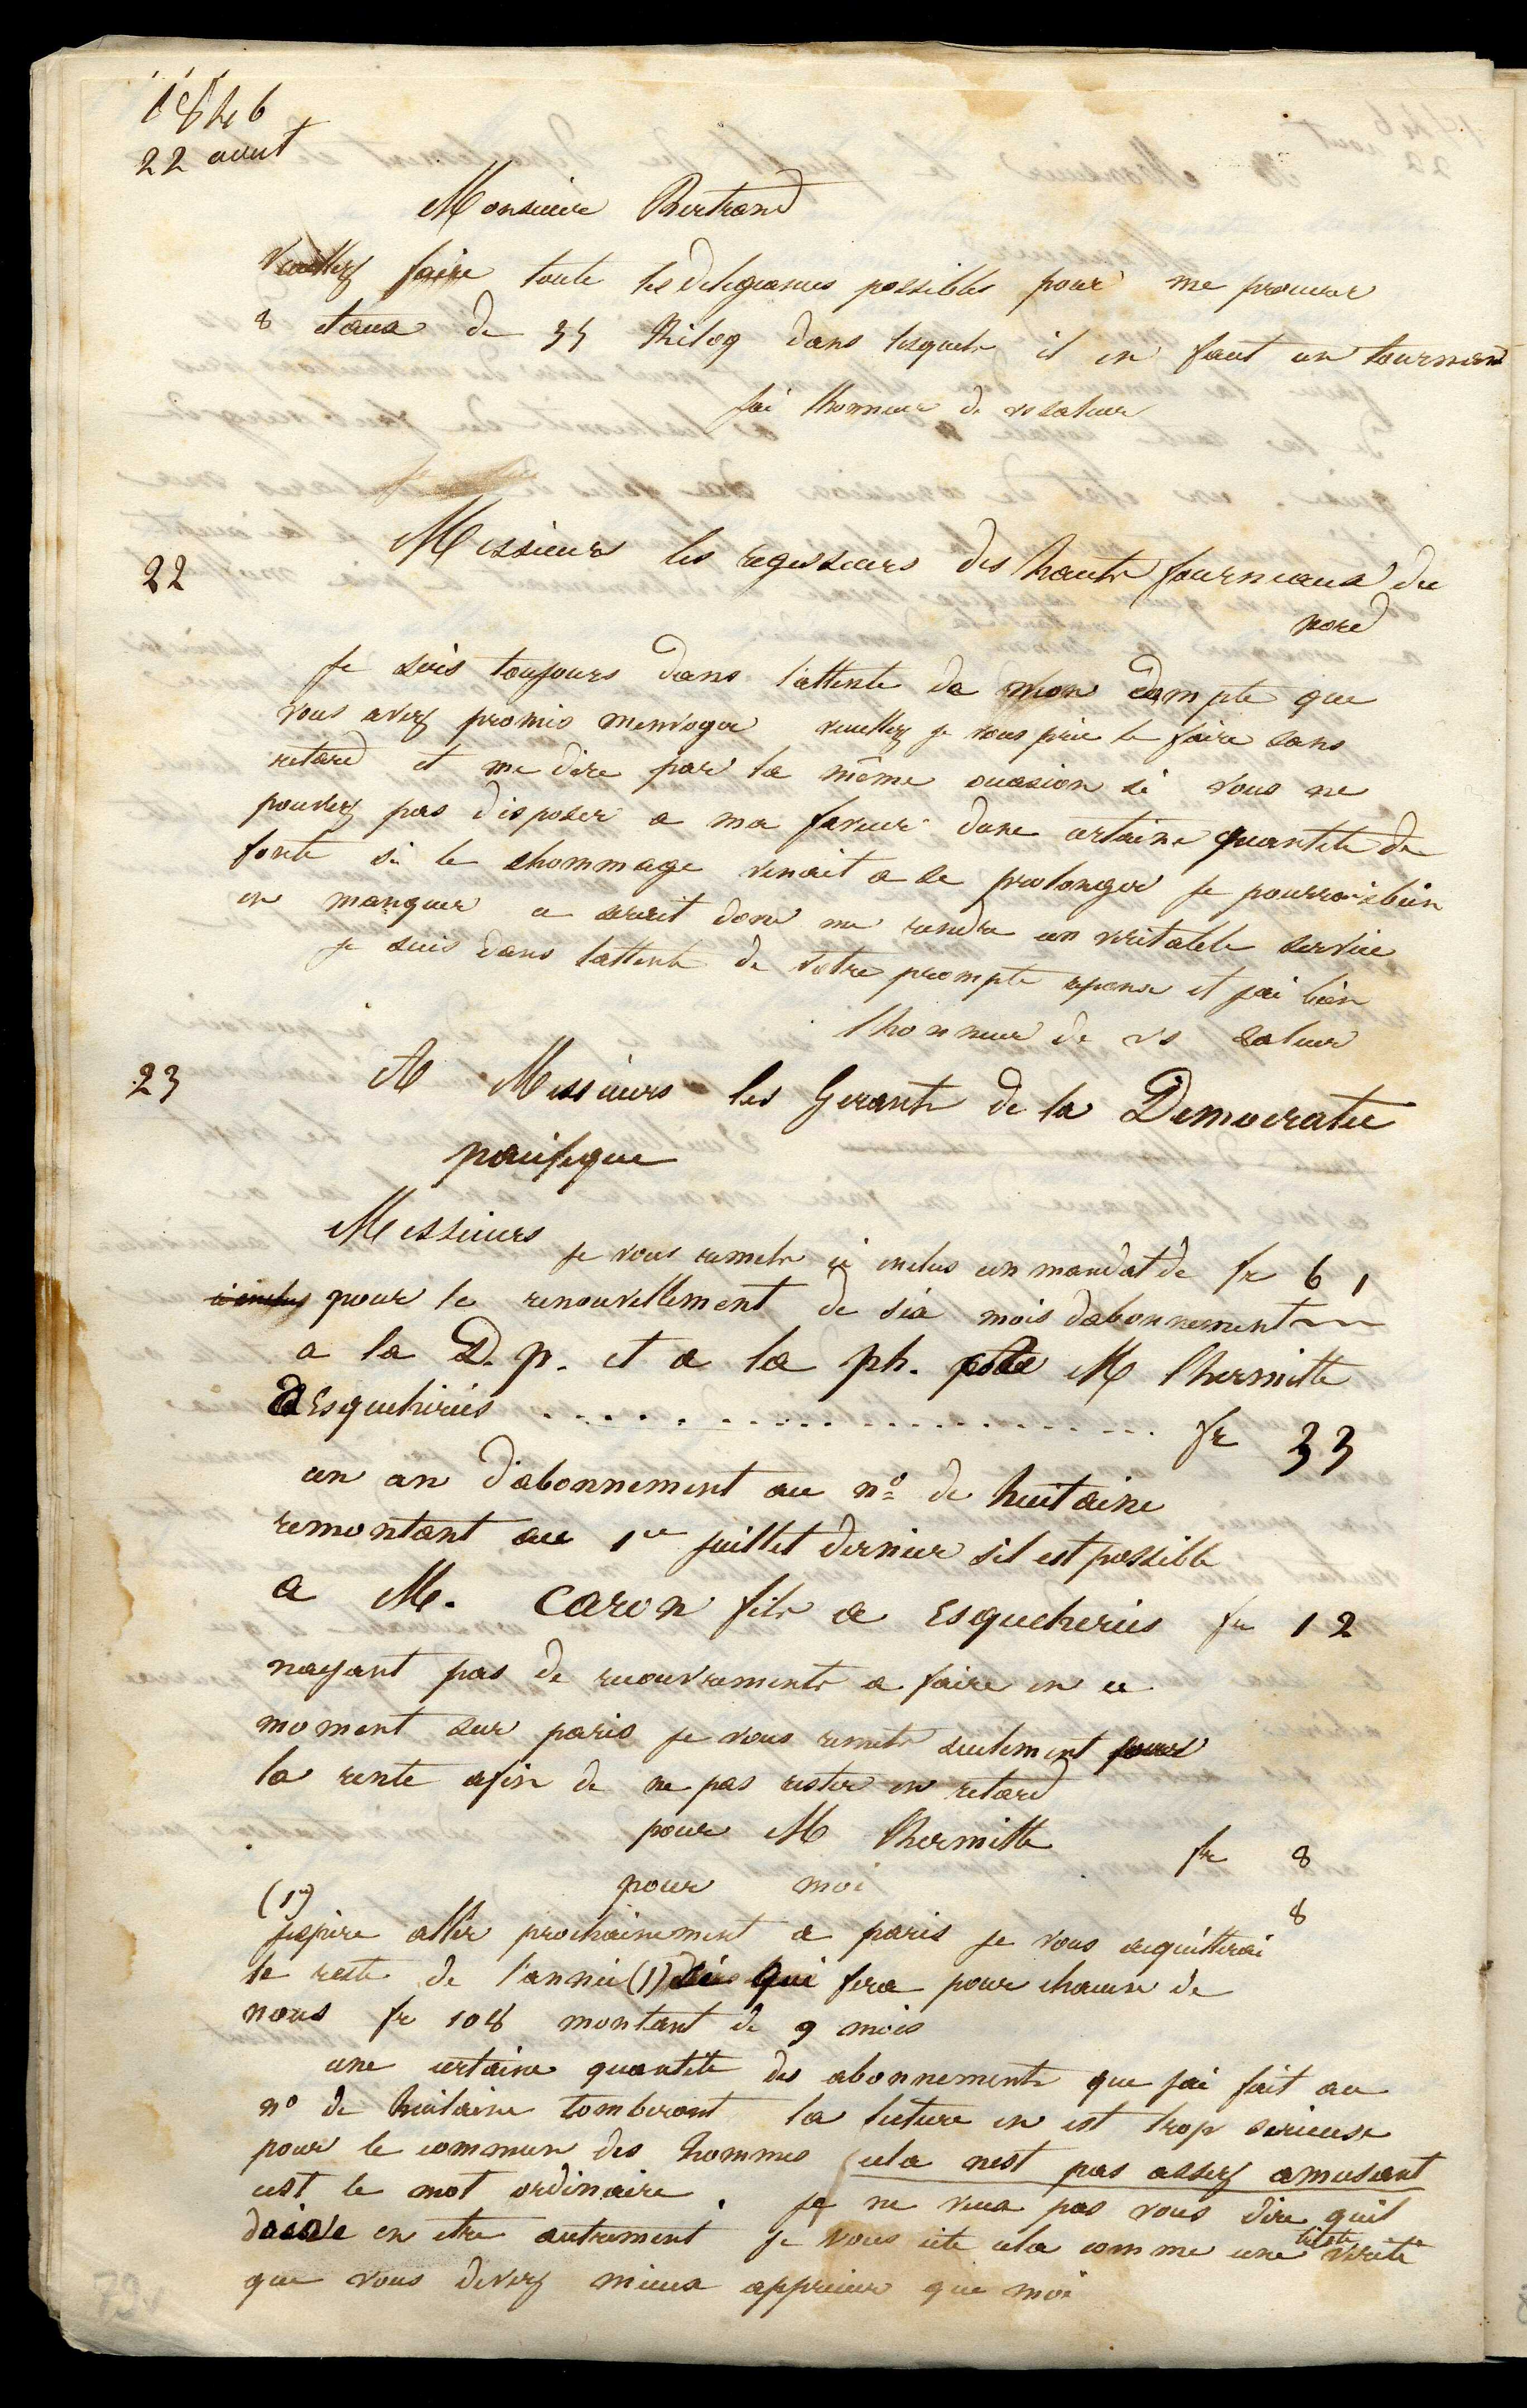 1846
22 aout
Monsieur Bertrand
Veuillez faire toute les deligeances possibles pour me procurer
8 etaux de 35 Kilog dans lesquels il en faut un tournan
jai lhonneur de vs saluer
22
Messieurs les regisseurs des hauts fourneaux du
nord
Je suis toujours dans l'attente de mon compte que
vous avez promis menvoyer veuillez je vous prie le faire sans
retard et me dire par la même occasion si vous ne
pouvez pas disposer a ma faveur dune certaine quantité de
fonte si le chommage venait a se prolonger je pourrais bien
en manquer ce serait donc me rendre un veritable service
je suis dans lattente de votre prompte reponse et jai bien
lhonneur de vs saluer
23
A Messieurs les Gerants de la Democratie
pacifique
Messieurs
je vous remets ci inclus un mandat de fr 61
ci inclus pour le renouvellement de six mois dabonnement
a la D. p. et a la ph. M lhermitte
d'Esqueheries . . . . . . . . . . . . . . . . fr 33
un an d'abonnement au no de huitaine
remontant au 1er juillet dernier sil est possible
a M. Caron fils a Esqueheries fr 12
nayant pas de recouvrements a faire en ce
moment sur paris je vous remets seulement pour
la rente afin de ne pas rester en retard
pour M lhermitte fr 8
pour moi 8
(1)
jespère aller prochainement a paris je vous acquitterai
le reste de l'année (1) qui fera pour chacun de
nous fr 108 montant de 9 mois
une certaine quantité des abonnements que jai fait au
no de huitaine tomberont la lecture en est trop serieuse
pour le commun des hommes cela nest pas assez amusant
cest le mot ordinaire. je ne veux pas vous dire quil
doive en etre autrement je vous cite cela comme une triste verité
que vous devez mieux apprecier que moi